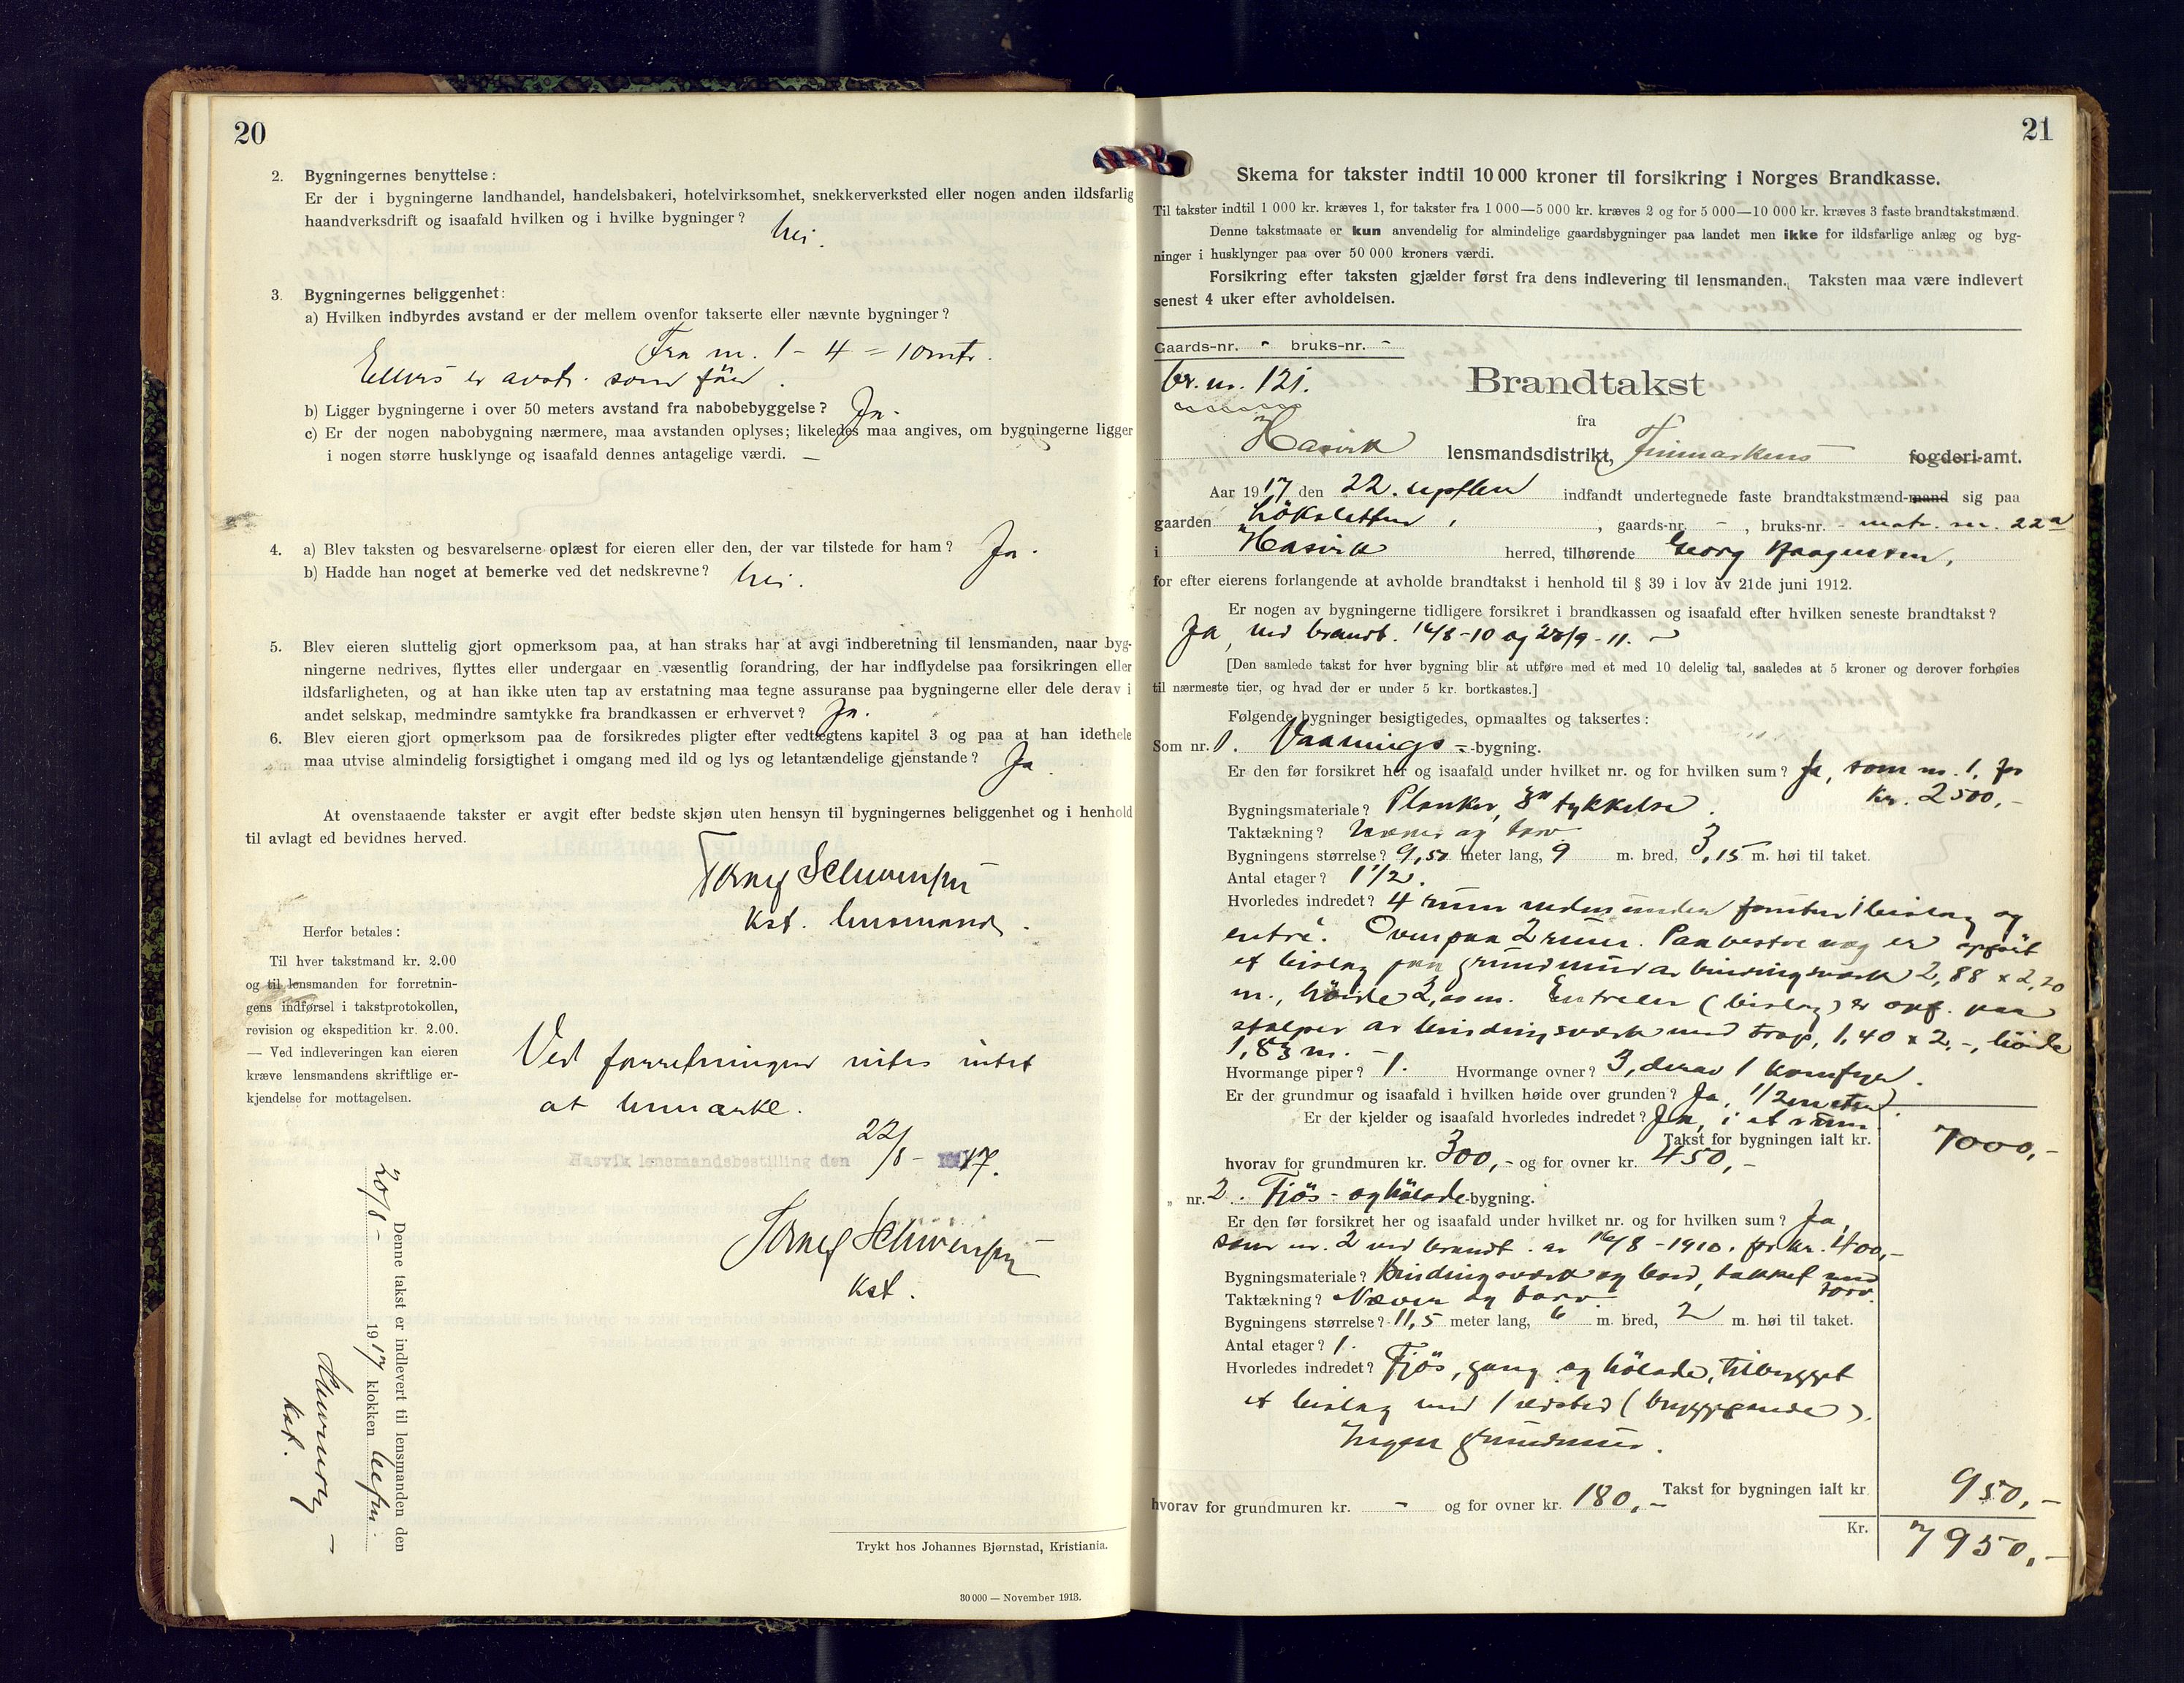 20
2. Bygningernes benyttelse:
Er der i bygningerne landhandel, handelsbakeri, hotelvirksomhet, snekkerverksted eller nogen anden ildsfarlig
haandverksdrift og isaafald hvilken og i hvilke bygninger? Nei.
3. Bygningernes beliggenhet:
a) Hvilken indbyrdes avstand er der mellem ovenfor takserte eller nævnte bygninger?
Fra nr. 1 - 4 = 10 mtr.
Ellers er avst. som før.
b) Ligger bygningerne i over 50 meters avstand fra nabobebyggelse? Ja.
c) Er der nogen nabobygning nærmere, maa avstanden oplyses; likeledes maa angives, om bygningerne ligger
i nogen større husklynge og isaafald dennes antagelige værdi. —
4. a) Blev taksten og besvarelserne oplæst for eieren eller den, der var tilstede for ham? Ja.
b) Hadde han noget at bemerke ved det nedskrevne? Nei.
5. Blev eieren sluttelig gjort opmerksom paa, at han straks har at avgi indberetning til lensmanden, naar byg-
ningerne nedrives, flyttes eller undergaar en væsentlig forandring, der har indflydelse paa forsikringen eller
ildsfarligheten, og at han ikke uten tap av erstatning maa tegne assuranse paa bygningerne eller dele derav i
andet selskap, medmindre samtykke fra brandkassen er erhvervet? Ja.
6. Blev eieren gjort opmerksom paa de forsikredes pligter efter vedtægtens kapitel 3 og paa at han idethele
maa utvise almindelig forsigtighet i omgang med ild og lys og letantændelige gjenstande? Ja.
At ovenstaaende takster er avgit efter bedste skjøn uten hensyn til bygningernes beliggenhet og i henhold
til avlagt ed bevidnes herved.
kst. lensmand.
Herfor betales:
Til hver takstmand kr. 2.00
og til lensmanden for forretnin-
gens indførsel i takstprotokollen,
revision og ekspedition kr. 2.00.
— Ved indleveringen kan eieren
kræve lensmandens skriftlige er-
kjendelse for mottagelsen.
Ved forretningen vites intet
at bemærke.
Hasvik lensmandsbestilling den 22/8 - 1917.
kst.
Denne takst er indlevert til lensmanden den
20/8 - 1917 klokken
kst.
Trykt hos Johannes Bjørnstad, Kristiania.
30 000 — November 1913.
21
Skema for takster indtil 10 000 kroner til forsikring i Norges Brandkasse.
Til takster indtil 1 000 kr. kræves 1, for takster fra 1 000—5 000 kr. kræves 2 og for 5 000—10 000 kr. kræves 3 faste brandtakstmænd.
Denne takstmaate er kun anvendelig for almindelige gaardsbygninger paa landet men ikke for ildsfarlige anlæg og byg-
ninger i husklynger paa over 50 000 kroners værdi.
Forsikring efter taksten gjælder først fra dens indlevering til lensmanden. Taksten maa være indlevert
senest 4 uker efter avholdelsen.
Gaards-nr. - bruks-nr. -
br. nr. 121.
Brandtakst
fra
Hasvik lensmandsdistrikt, Finmarkens fogderi-amt.
Aar 1917 den 22. septbr indfandt undertegnede faste brandtakstmænd-mand sig paa
gaarden , gaards-nr. - , bruks-nr. - matr. nr. 22a
i Hasvik herred, tilhørende Georg
for efter eierens forlangende at avholde brandtakst i henhold til § 39 i lov av 21de juni 1912.
Er nogen av bygningerne tidligere forsikret i brandkassen og isaafald efter hvilken seneste brandtakst?
Ja, ved brandt. 16/8 -10 og 28/9 - 11.
[Den samlede takst for hver bygning blir at utføre med et med 10 delelig tal, saaledes at 5 kroner og derover forhøies
til nærmeste tier, og hvad der er under 5 kr. bortkastes.]
Følgende bygninger besigtigedes, opmaaltes og taksertes:
Som nr. 1. Vaanings - -bygning.
Er den før forsikret her og isaafald under hvilket nr. og for hvilken sum? Ja, som nr. 1, for
kr. 2500,-
Bygningsmateriale? Planker, 3" tykkelse.
Taktækning? Næver og torv
Bygningens størrelse? 9,50 meter lang, 9 m. bred, 3,15 m. høi til taket.
Antal etager? 1 1/2.
Hvorledes indredet? 4 rum nedenunder foruten bislag og
entré. Ovenpaa 2 rum. Paa vestre væg er opført
et bislag paa grundmur av bindingsværk 2,88 x 2,20
m., høide 2, m. Entreen (bislag) er opf. paa
stolper av bindingsværk med trap, 1,40 x 2,-, høide
1,83 m. -
Hvormange piper? 1. Hvormange ovner? 3, derav 1 komfyr.
Er der grundmur og isaafald i hvilken høide over grunden? Ja, 1/2 meter.
Er der kjelder og isaafald hvorledes indredet? Ja, i et rum.
Takst for bygningen ialt kr. 7000,-
hvorav for grundmuren kr. 300,- og for ovner kr. 450,-
„ nr. 2. Fjös- og hölade-bygning.
Er den før forsikret her og isaafald under hvilket nr. og for hvilken sum? Ja,
som nr. 2 ved brandt. av 16/8 - 1910. for kr. 400,-
Bygningsmateriale? Bindingsværk og bord, takket med
torv.
Taktækning? Næver og torv.
Bygningens størrelse? 11,5 meter lang, 6 m. bred, 2 m. høi til taket.
Antal etager? 1.
Hvorledes indredet? Fjös, gang og hölade, tilbygget
et bislag med 1 ildsted (bryggepande).
Ingen grundmur.
Takst for bygningen ialt kr. 950,-
hvorav for grundmuren kr. - og for ovner kr. 180,-
Kr. 7950,-